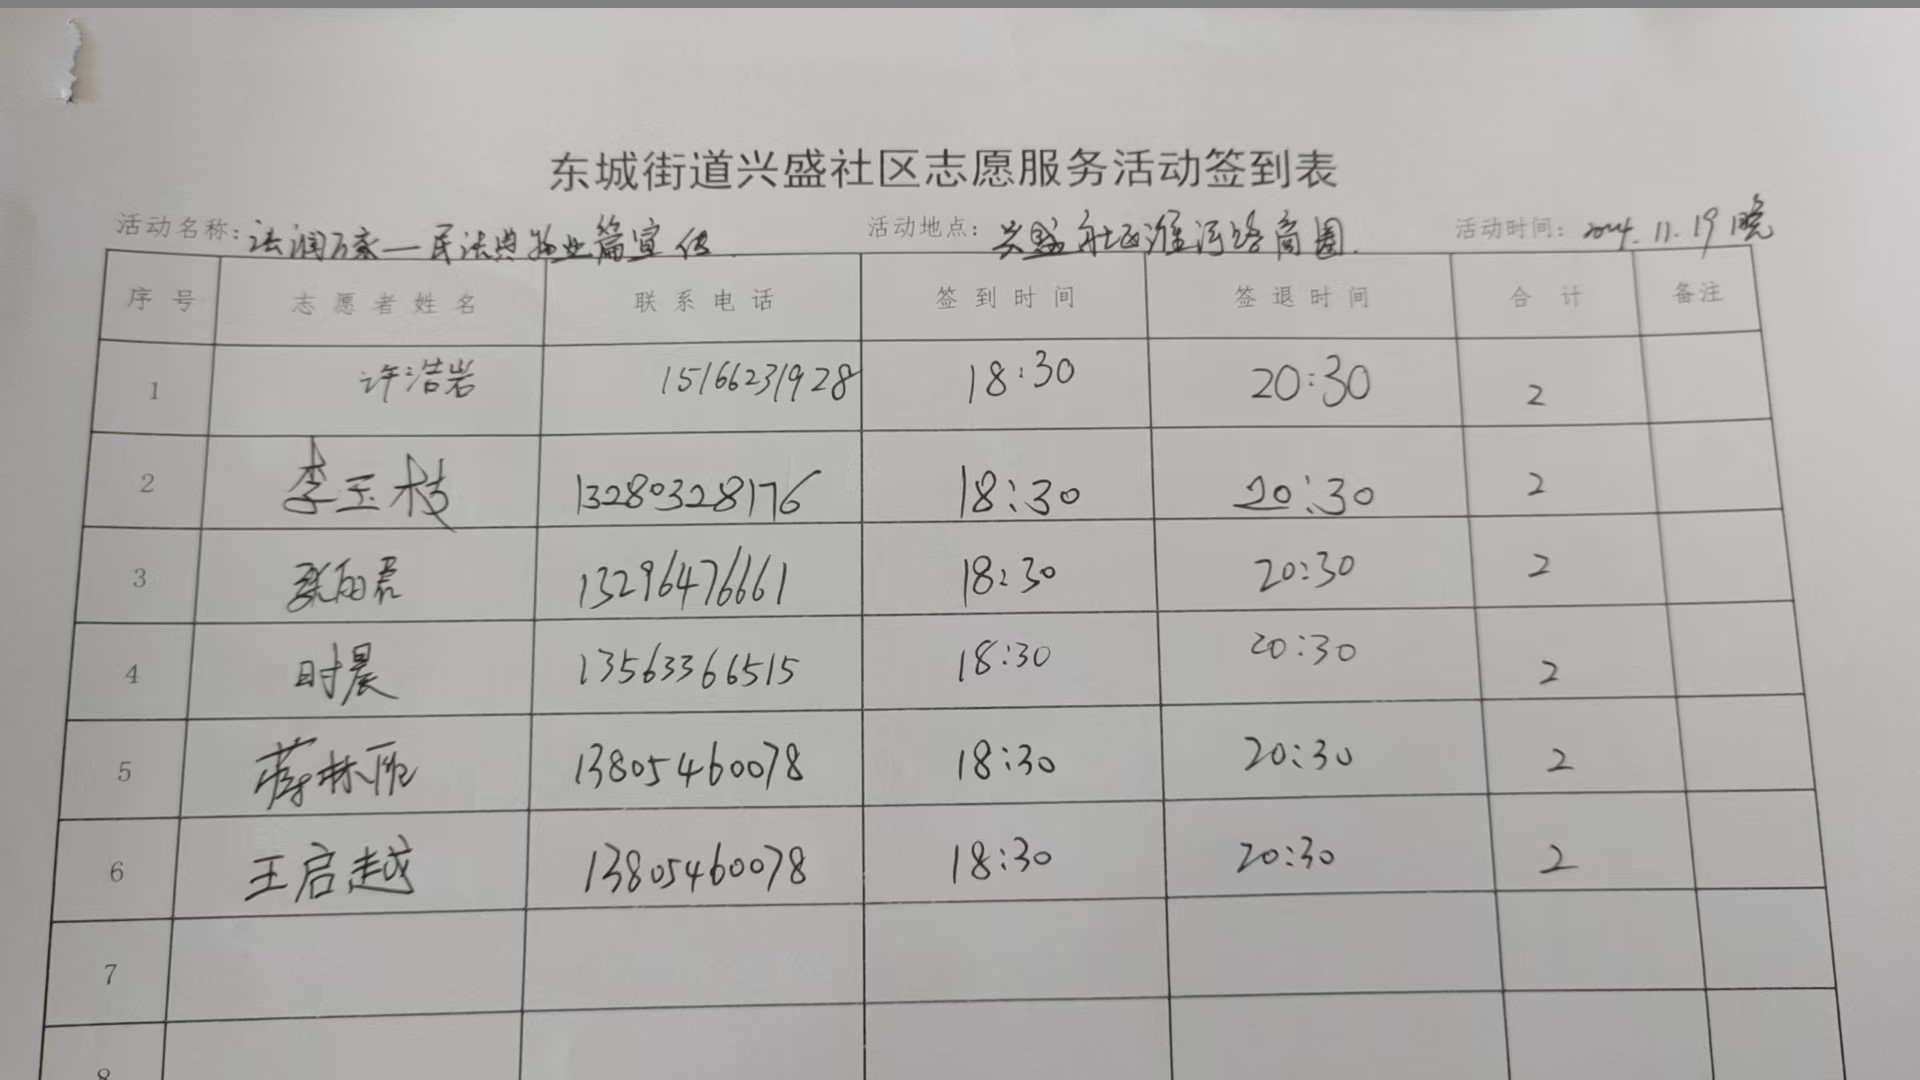 东城街道兴盛社区志愿服务活动签到表
活动名称：法润万家—民法典物业篇宣传 活动地点：兴盛社区淮河路商圈 活动时间：2024.11.19晚
序号 志愿者姓名 联系电话 签到时间 签退时间 合计 备注
1 许浩岩 15166231928 18:30 20:30 2
2 李玉枝 13280328176 18:30 20:30 2
3 13296476661 18:30 20:30 2
4 时晨 13563366515 18:30 20:30 2
5 13805460078 18:30 20:30 2
6 王启越 13805460078 18:30 20:30 2
7
8